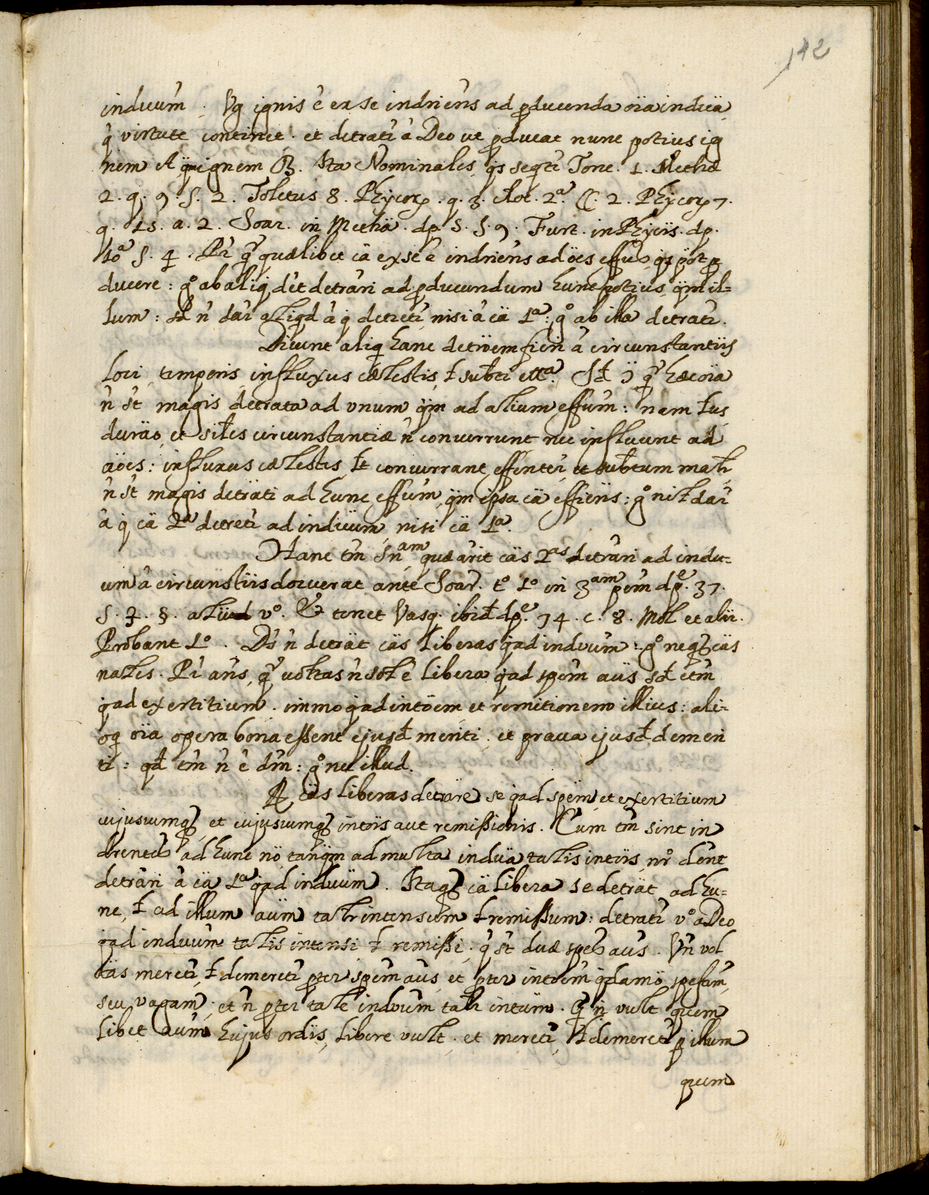 142
induum. Vg ignis ē ex se indriens ad producenda oīa indua
q̄ virtute continet et detratr̄ à Deo ut producat nunc potius ig
nem A quam ignem B. Ita Nominales, qs seqtr̄ Fonc. 1. Metha
2. q. 9 S. 2. Toletus 8. Phycorp. q. 3. Roc. 2ª C. 2. Phycorp 7.
q. 15. a. 2. Soar. in Metha. dp. 5. S. 9. Furt. in Phyciis. dp.
10ª S. 4. Pr̄ q̄ quælibet cä ex se ē indriens ad oēs effus qs pōt p
ducere: gº ab aliq det detrari ad producendum hunc potius, qm̄ il-
lum: sd n̄ dar̄ aliqd à q̄ detretr̄ nisi à cä 1ª: gº ab illa detratr̄.
Dicunt aliq hanc detroem fieri à circunstantiis
loci, temporis, influxus cælestis, ł subti mª. Sd q̄ hæc oīa
n̄ st magis detrata ad unum qm̄ ad alium effum: nam łus
durāo, et siłes circunstantiæ n̄ concurrunt nec influunt ad
aöes: influxus cælestis łt concurrant effinter, et subtum mati
n̄ st magis detrati ad hunc effum, qm̄ ipsa cä effiens: gº nil dar̄
à q̄ cä 2ª detretr̄ ad induum nisi cä 1ª.
Hanc tm̄ snam quæ arit cäs 2as detrari ad indu-
um à circunstiis docuerat ante Soar. tº 1º in 3am pem dpe. 37.
S. 2. §. aliud vº. Et tenet Vasq. ibid dpe. 74. c. 8. Mol et alii.
Probant 1º. Ds n̄ detrat cäs liberas qad induum: gº neqz cäs
nałes. Pr̄ ans, q̄ volłas n̄ sol ē libera qad spem aus sd etm̄
qad exertitium. immo qad intōem et remitionem illius: ali-
oq oīa opera bona essent ejusd meriti, et prava ejusd demeri
ti: qd tm̄ n̄ ē dm̄: gº nec illud.
R. cäs liberas detrare se qad spem et exertitium
cujuscumqz, et cujuscumqz intōis aut remissionis. Cum tm̄ sint in
drentes ad hunc nō tanqm ad multa indua talis intiis, nr̄ dent
detrari à cä 1ª qad induum. Itaqz cä libera se detrat ad hu-
nc, ł ad illum aum talr intensum ł remissum: detratr̄ vº a Deo
qad induum talis intensi ł remissi: q̄ st duæ spes aus. Un vol
tas meretr̄, ł demeretr̄ pter spem aus, et pter intōem qdamo, spesim,
seu vagam, et n̄ pter tałe induum talr intum. Qn vult quem
libet aum hujus ordis, libere vult et meretr̄, ł demeretr̄ p illum
quem